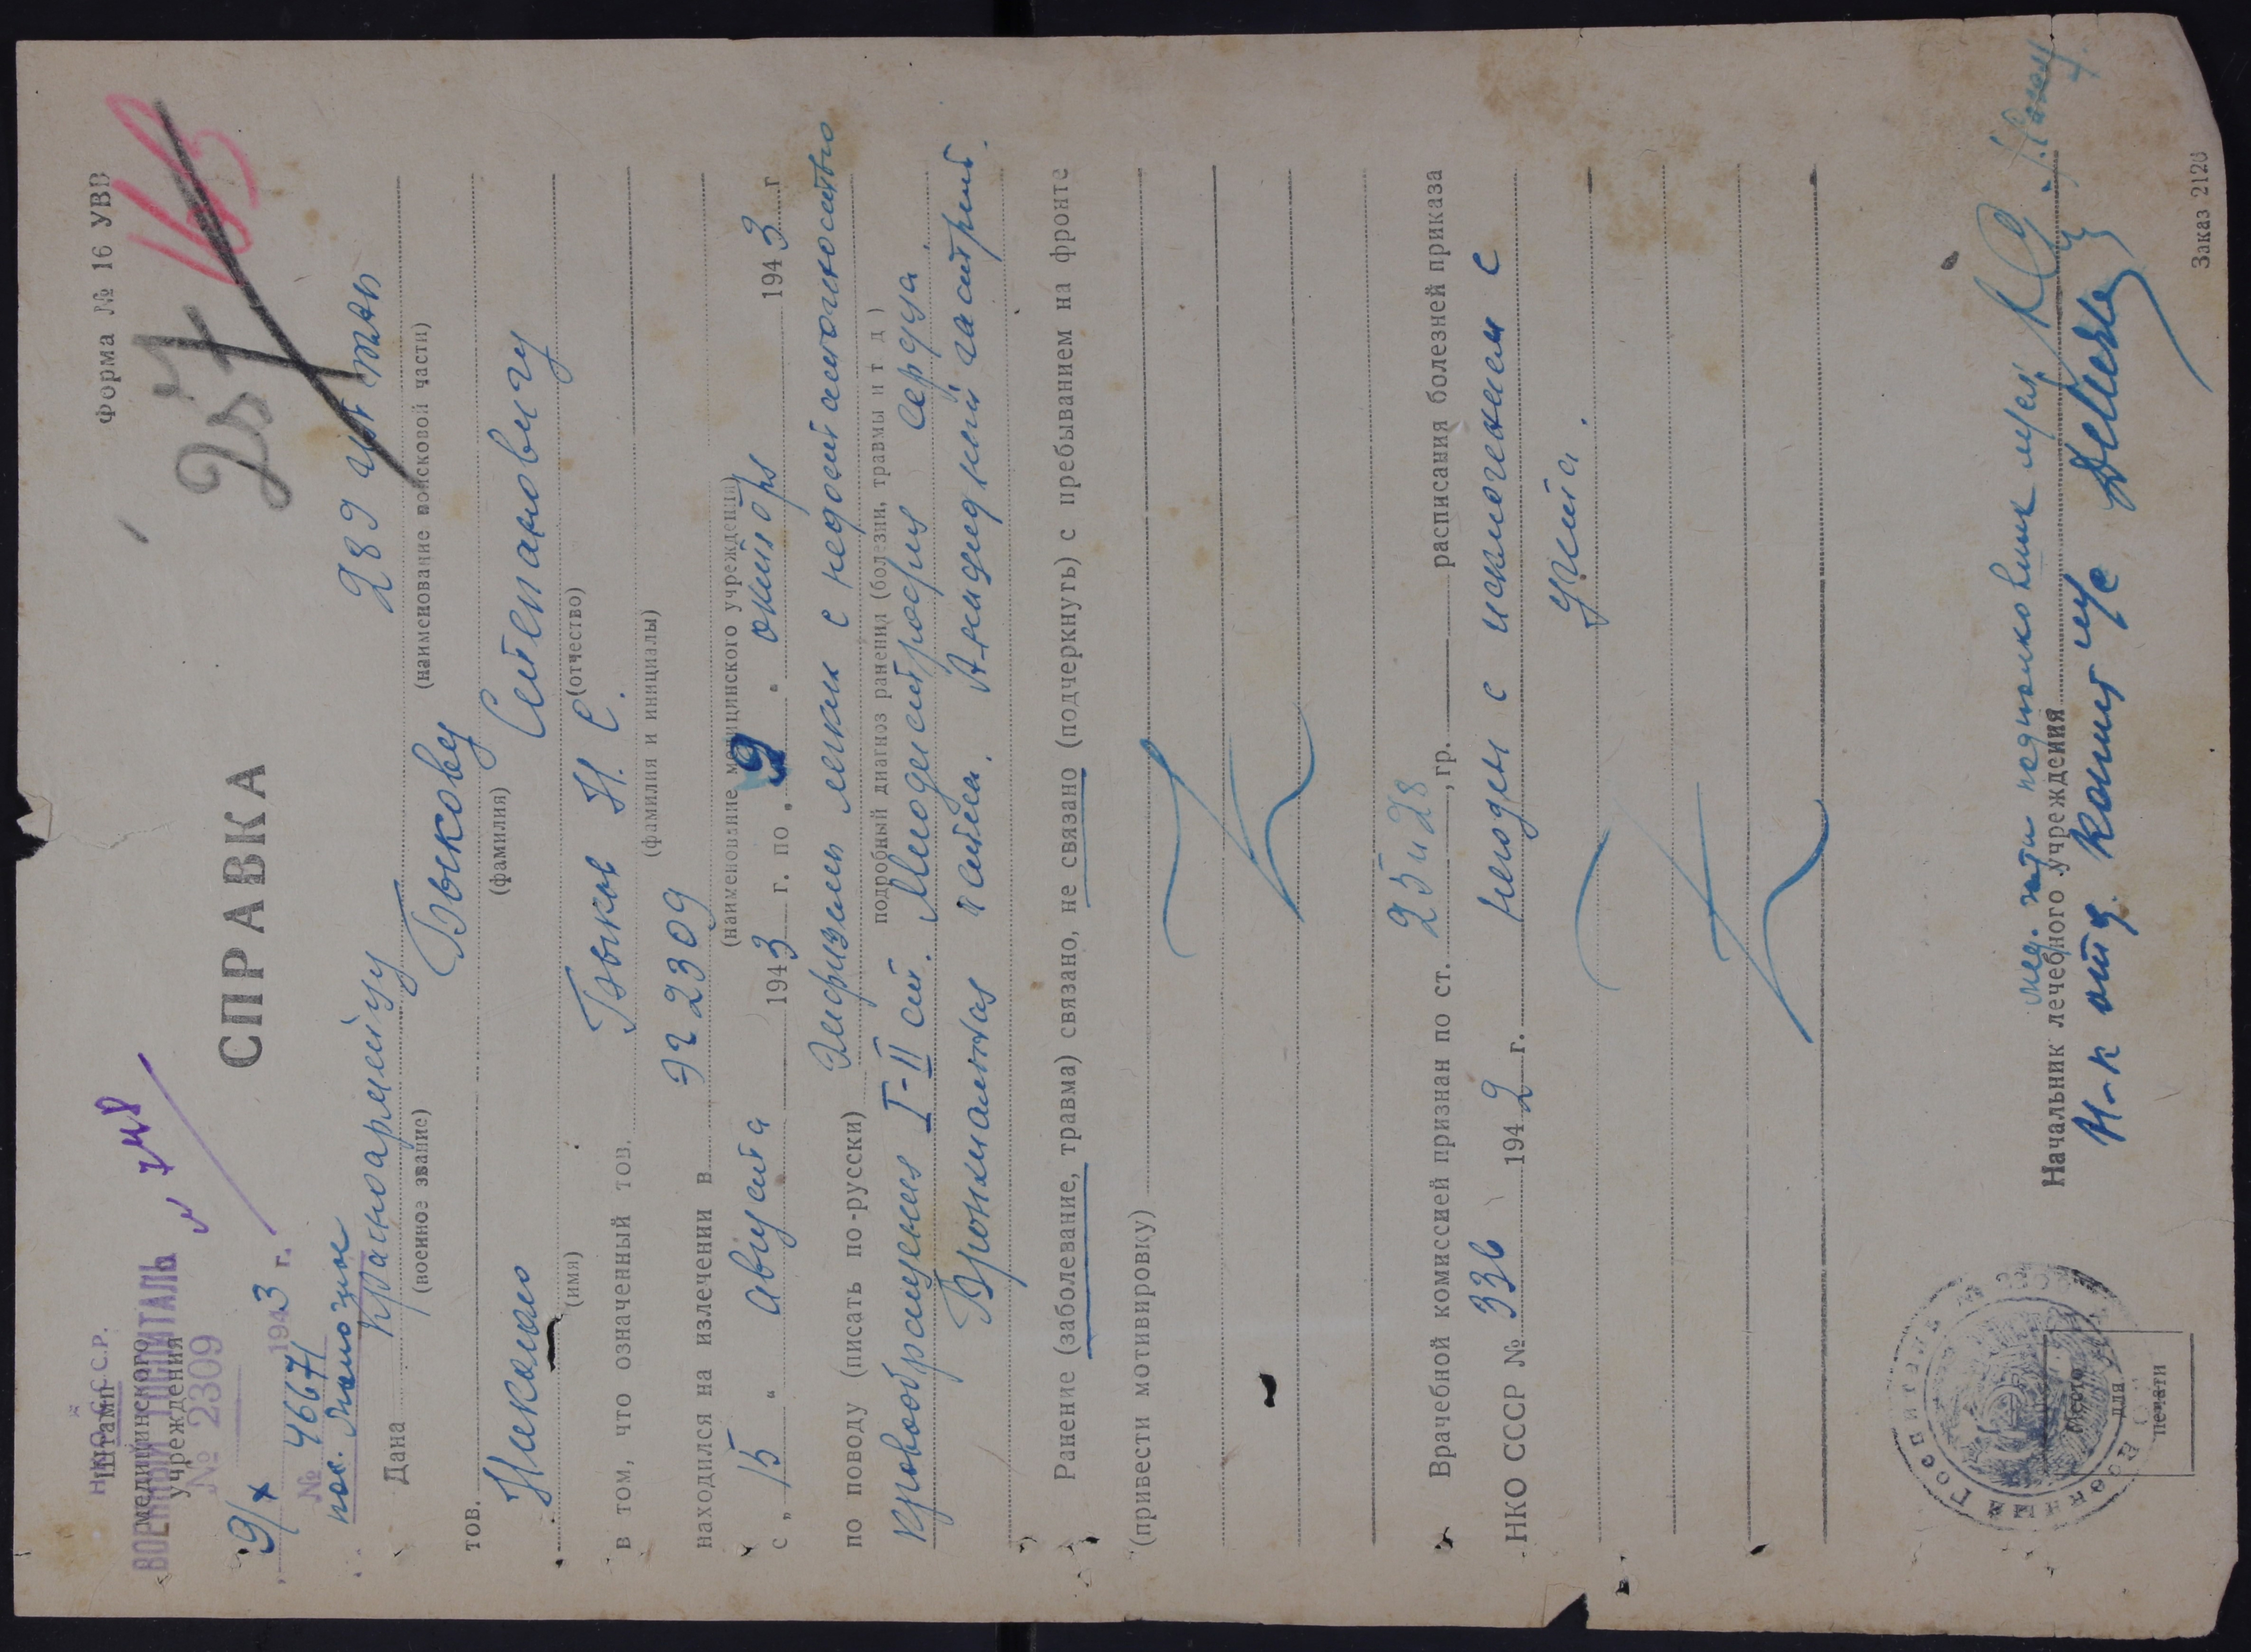 Форма № 16 УВВ
Н.К.О. С.С.Р.
Штамп
медицинского
учреждения
ВОЕННЫЙ ГОСПИТАЛЬ
№ 2309
9/X 1943 г.
№ 46671
257
СПРАВКА
Дана красноармейцу 289
(военное звание) (наименование войсковой части)
тов. Быкову
(фамилия)
Николаю Степановичу
(имя) (отчество)
в том, что означенный тов. Быков Н. С.
(фамилия и инициалы)
находился на излечении в ЭГ 2309
(наименование медицинского учреждения)
с „ 15 " августа 1943 г. по „ 9 " октября 1943 г
по поводу (писать по-русски) Эмфизема легких с недостаточностью
подробный диагноз ранения (болезни, травмы и т д )
кровообращения I-II ст. Миодистрофия сердца.
Бронхиальная астма. Анацидный гастрит.
Ранение (заболевание, травма) связано, не связано (подчеркнуть) с пребыванием на фронте
(привести мотивировку)
Врачебной комиссией признан по ст. 25 и 28, гр. расписания болезней приказа
НКО СССР № 336 1942 г. негоден с исключением с
учета.
Начальник лечебного учреждения
подполковник
Н-к отд.
Место
для
печати
Заказ 2120